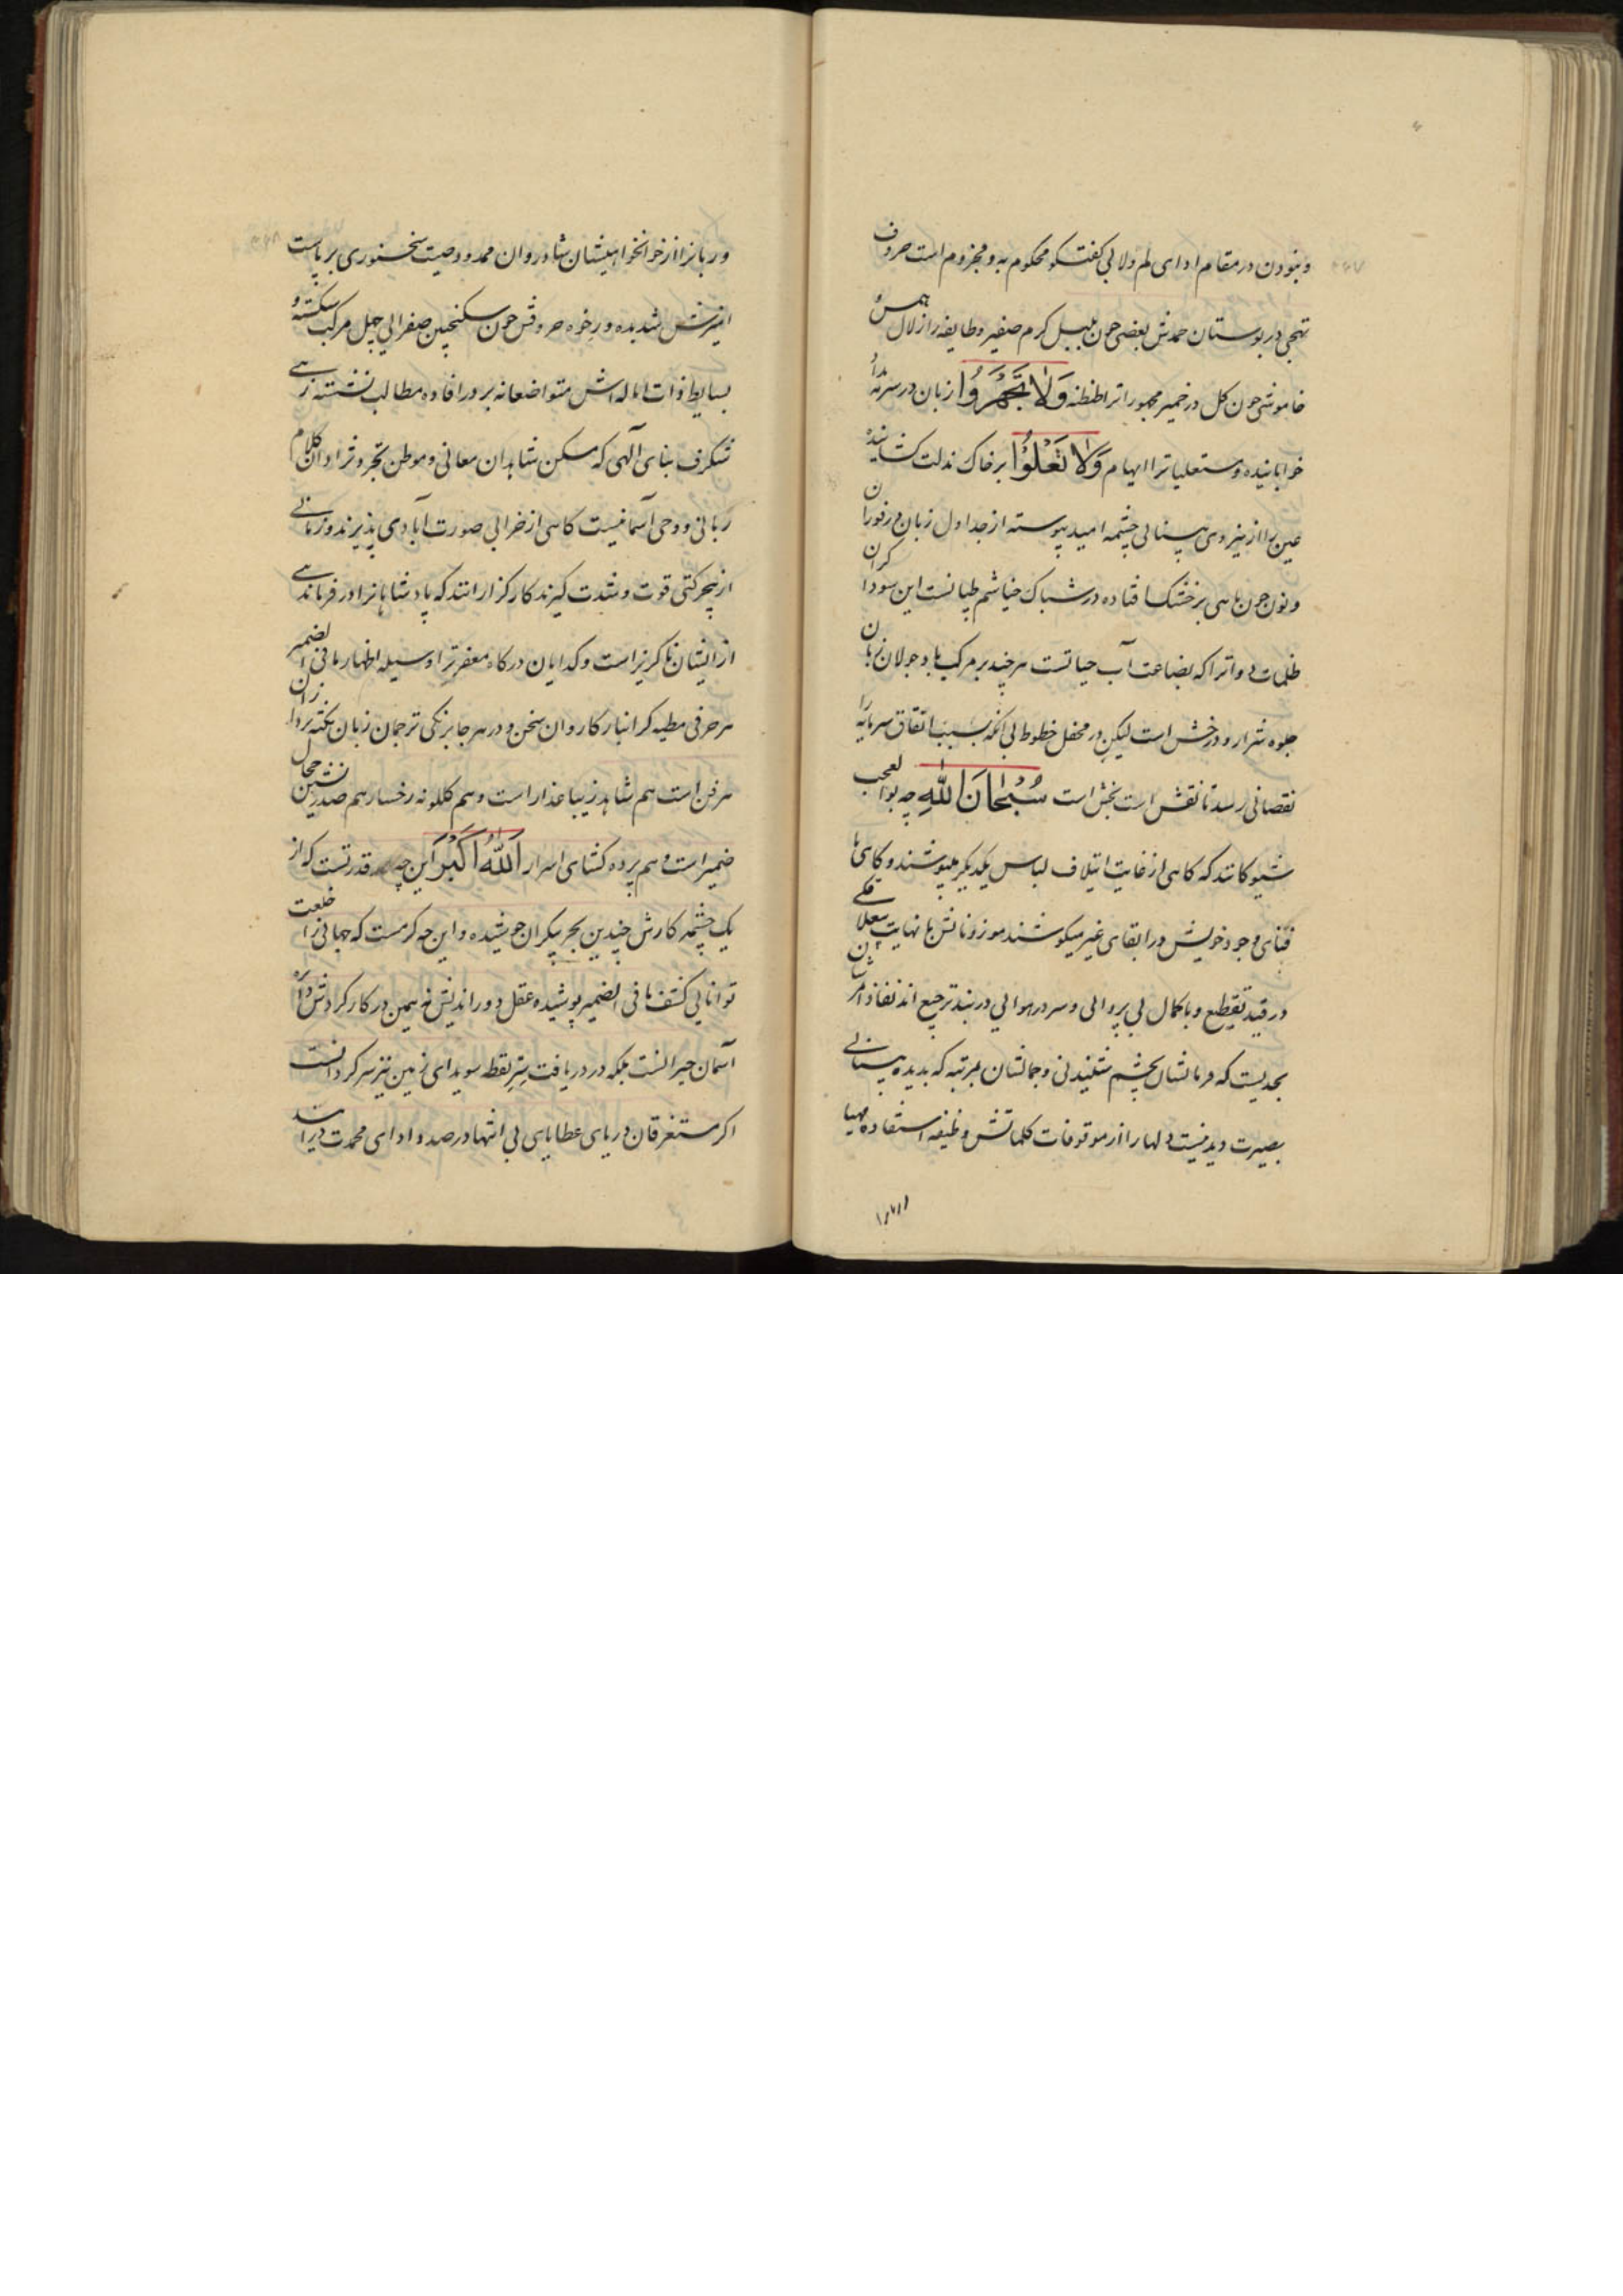 و نبودن در مقام ادای لم ولا بی گفتگو محکوم به و مجزوم است حروف
تهجی در بوستان حمدش بعضی چون بلبل گرم صفیر و طایفه را از لال همس
خاموشی چون گل در خمیر مجهوراترا طنطنه وَلا تَجْهَرُوا زبان در سرمه
خوابانیده و مستعلیاترا ایهام وَلا تَعْلُوْا بر خاک مذلت نشانیده
عین را از نیروی بینائی چشمه امید پیوسته از جداول زبان در فوران
و نون چون ماهی بر خشک افتاده در شباک خیاشم طپانست این سوداگران
ظلمات دواترا که بضاعت آب حیاتست هر چند بر مرکب باد جولان زبان
جلوه شرار و درخش است لیکن در محفل خطوط بی آنکه بسبب اتفاق سرمایه را
نقصانی رسد تا نقش است بخش است سُبْحَانَ اللهِ چه بوالعجب
شیوه کانند که گاهی از غایت ایتلاف لباس یکدیگر میپوشند و گاهی با
فنای وجود خویش در ابقای غیر میکوشند موزوناتش با نهایت بیعلاقگی
در قید تقطیع و با کمال بی پروائی و سر در هوائی در بند ترجیع اند نفاذ امر شان
بحدیست که فرمانشان بچشم شنیدنی و جمالشان بمرتبه که بدیده بینائی
بصیرت دیدنیست دلها را از موقوفات کلماتش وظیفه استفاده مهیا
و زبانرا از خوانخواهیشان شادروان محمد و صیت سخنوری برپاست
امیزش شدیده و رخوه حروفش چون سکنجبین صفرای جهل مرکب شکسته و
بسایط ذات اماله اش متواضعانه بر در افاده مطالب نشسته زهی
شگرف بنای آلهی که مسکن شاهدان معانی و موطن تجرد نژادان کلام
ربانی و وحی آسمانیست گاهی از خرابی صورت آبادی پذیرند و زمانی
از بیحرکتی قوت و شدت گیرند کارگزارانند که پادشاهانرا در فرماندهی
از ایشان ناگزیر است و گدایان درگاه مغفرترا وسیله اظهار مافی الضمیر
هر حرفی مطیه گرانبار کاروان سخن و در هر جا بزنگی ترجمان زبان نکته پردازان
هر فن است هم شاهد زیبا عذار است و هم گلگونه رخسار هم صدرنشین حجال
ضمیر است و هم پرده گشای اسرار اَللهُ اَکْبَر این چه قدرتست که از
یک چشمه کارش چندین بحر بیکران جوشیده و این چه کرمست که جهانی را خلعت
توانایی کشف مافی الضمیر پوشیده عقل دوراندیش نه همین در کار گردش دائره
آسمان حیرانست بلکه در دریافت سِرّ نقطه سویدای زمین نیز سرگردانست
اگر مستغرقان دریای عطایای بی انتها در صدد ادای محمدت درآیند